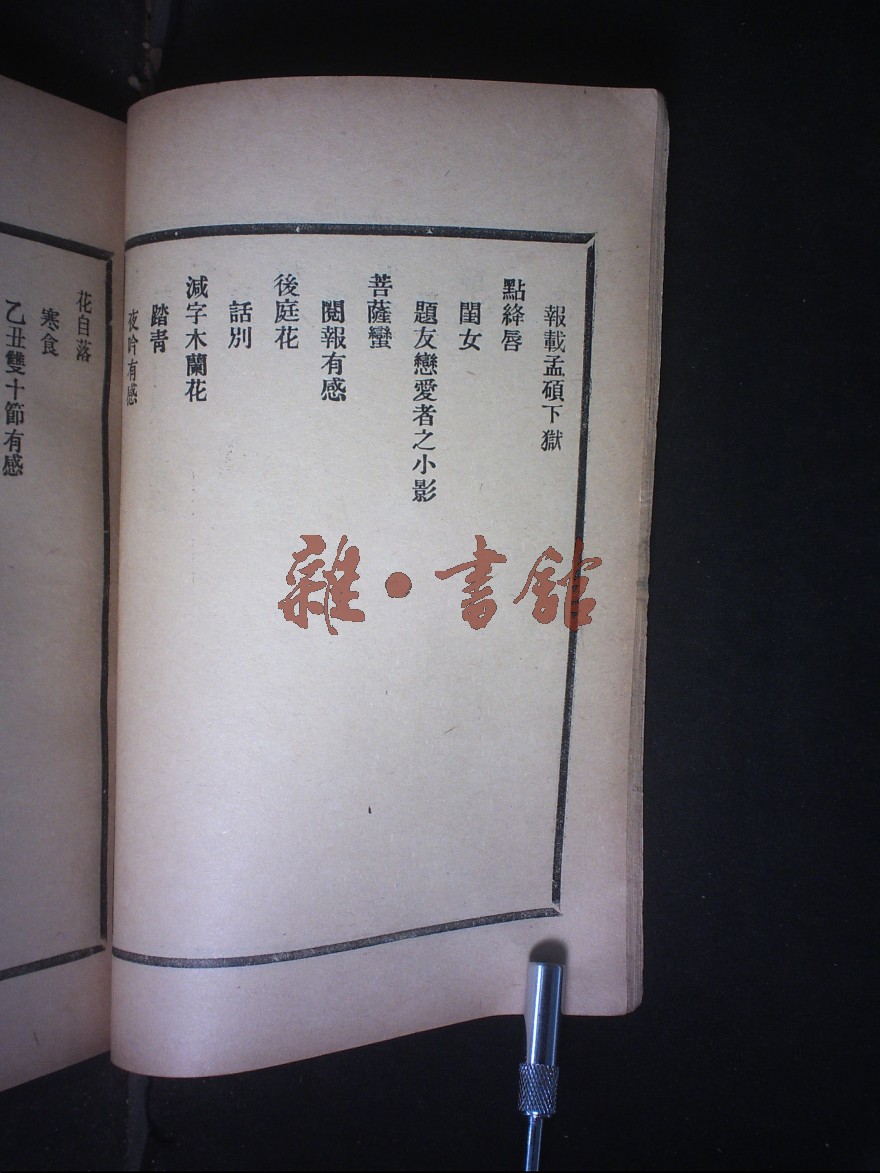 報載孟碩下獄
點絳唇
閨女
題友戀愛者之小影
菩薩蠻
閱報有感
後庭花
話別
減字木蘭花
踏青
夜吟有感
花自落
寒食
乙丑雙十節有感
雜·書館